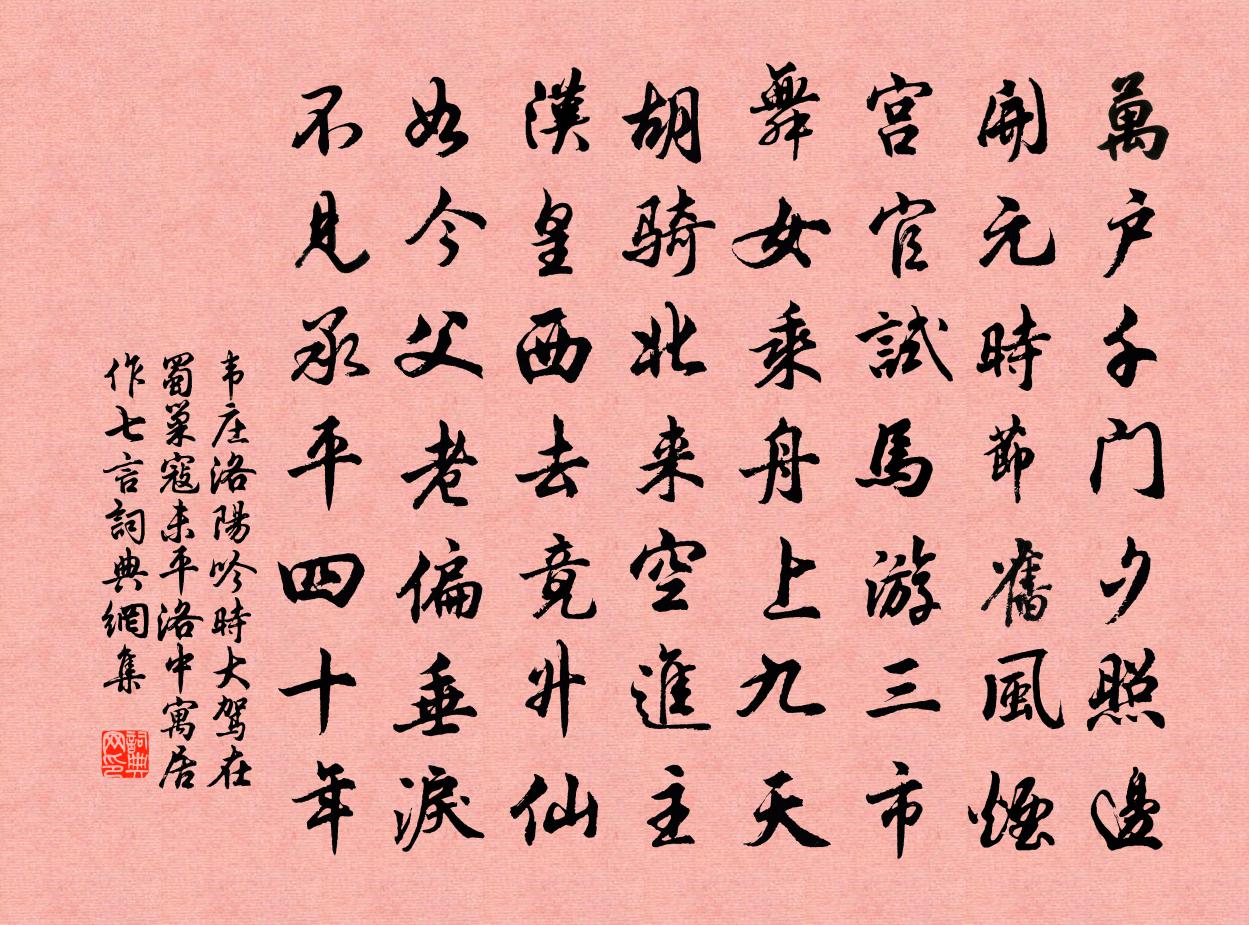 萬户千门夕照邊
開元時節舊風煙
宫官試馬游三市
舞女乘舟上九天
胡騎北来空進主
漢皇西去竟升仙
如今父老偏垂淚
不見承平四十年
韦庄洛陽吟時大駕在
蜀巢寇未平洛中寓居
作七言詞典網集
詞典网印